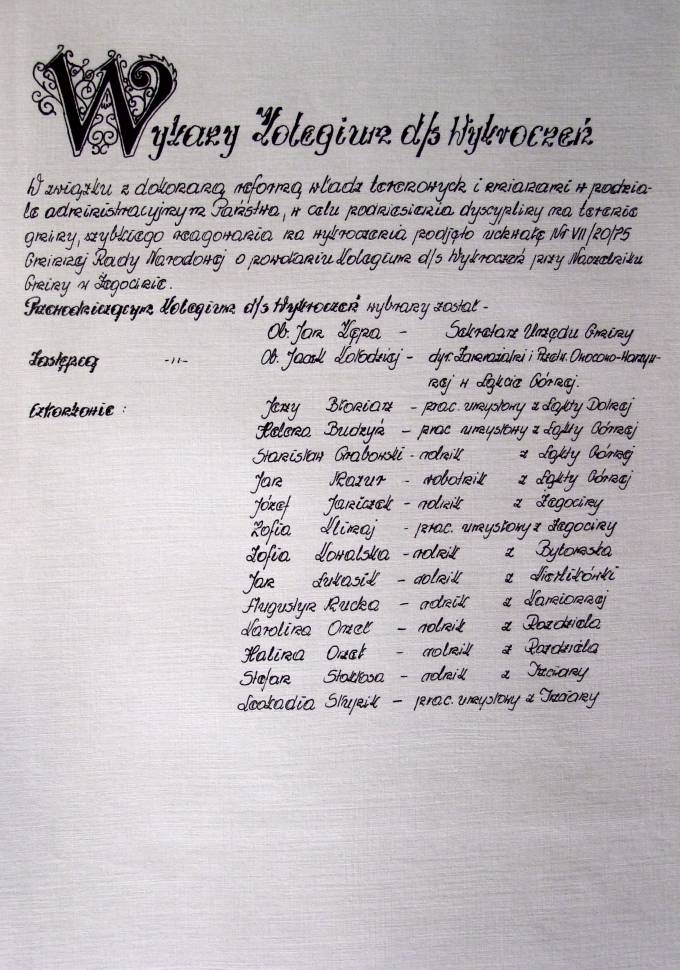 Wykazy Kolegium d/s Wykroczeń
W związku z dokonaną reformą władz terenowych i zmianami w podzia-
le administracyjnym Państwa, w celu podniesienia dyscypliny na terenie
gminy, szybkiego reagowania na wykroczenia podjęto uchwałę Nr VII/20/75
Gminnej Rady Narodowej o powołaniu Kolegium d/s Wykroczeń przy Naczelniku
Gminy w Żegocinie.
Przewodniczącym Kolegium d/s Wykroczeń wybrany został -
Ob. Jan Kępa - Sekretarz Urzędu Gminy
Zastępcą -"- Ob. Jacek Kołodziej - dyr. Zamrażalni i Przetw. Owocowo-Warzyw-
nej w Łąkcie Górnej.
Członkowie : Jerzy Błoniarz - prac. umysłowy z Łąkty Dolnej
Helena Budzyń - prac umysłowy z Łąkty Górnej
Stanisław Grabowski - rolnik z Łąkty Górnej
Jan Mazur - robotnik z Łąkty Górnej
Józef Janiczek - rolnik z Żegociny
Zofia Klimaj - prac. umysłowy z Żegociny
Zofia Kowalska - rolnik z Bytomska
Jan Łukasik - rolnik z Kierlikówki
Augustyn Kucka - rolnik z Kamionnej
Karolina Orzeł - rolnik z Rozdziela
Halina Orzeł - rolnik z Rozdziela
Stefan Stokłosa - rolnik z Trzciany
Leokadia Słupik - prac. umysłowy z Trzciany